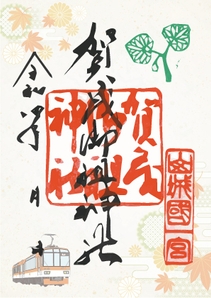 山城國一宮
賀茂御祖神社
賀茂御祖神社
令和
月
日